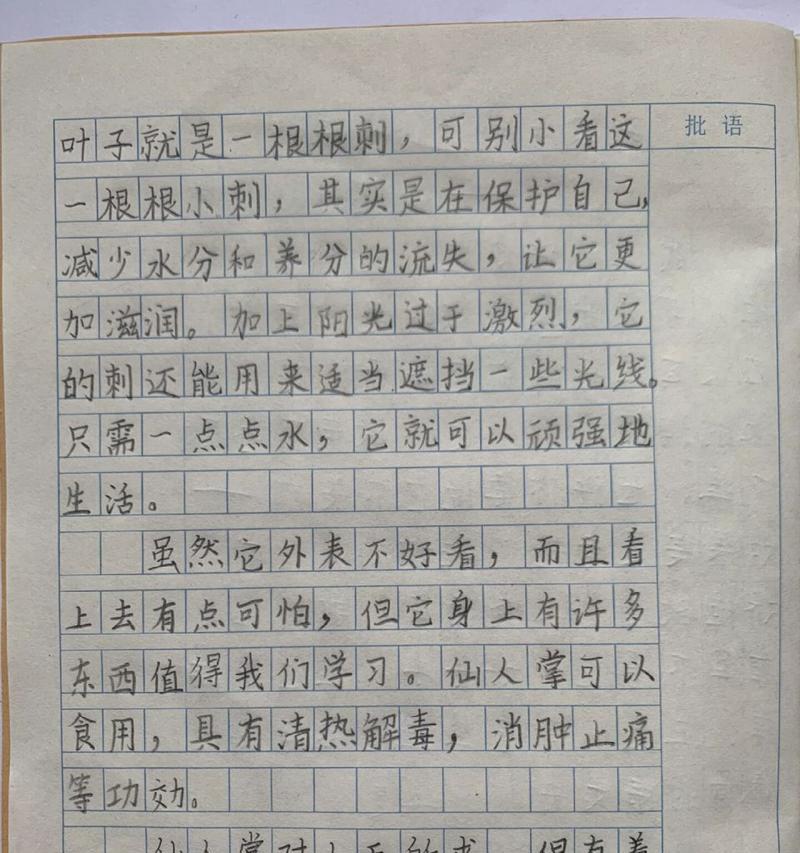 批语
叶子就是一根根刺，可别小看这
一根根小刺，其实是在保护自己，
减少水分和养分的流失，让它更
加滋润。加上阳光过于激烈，它
的刺还能用来适当遮挡一些光线。
只需一点点水，它就可以顽强地
生活。
虽然它外表不好看，而且看
上去有点可怕，但它身上有许多
东西值得我们学习。仙人掌可以
食用，具有清热解毒，消肿止痛
等功效。
仙人掌对